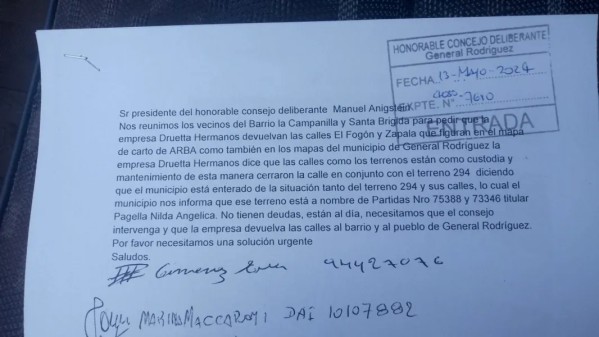 HONORABLE CONCEJO DELIBERANTE
General Rodriguez
FECHA 13-Mayo-2024
EXPTE. N° 7610
ENTRADA
Sr presidente del honorable consejo deliberante Manuel Anigstein
Nos reunimos los vecinos del Barrio la Campanilla y Santa Brigida para pedir que la
empresa Druetta Hermanos devuelvan las calles El Fogón y Zapala que figuran en el mapa
de carto de ARBA como también en los mapas del municipio de General Rodríguez la
empresa Druetta Hermanos dice que las calles como los terrenos están como custodia y
mantenimiento de esta manera cerraron la calle en conjunto con el terreno 294 diciendo
que el municipio está enterado de la situación tanto del terreno 294 y sus calles, lo cual el
municipio nos informa que ese terreno está a nombre de Partidas Nro 75388 y 73346 titular
Pagella Nilda Angelica. No tienen deudas, están al día, necesitamos que el consejo
intervenga y que la empresa devuelva las calles al barrio y al pueblo de General Rodríguez.
Por favor necesitamos una solución urgente
Saludos.
94427076
MARINA MACCARONI DNI 10107882